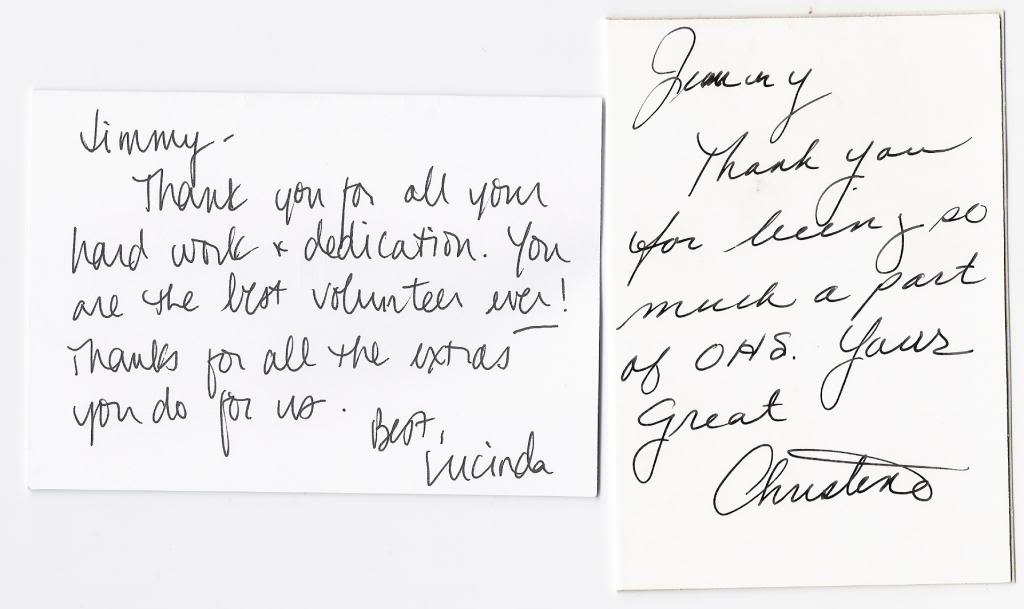 Jimmy -
Thank you for all your
hard work + dedication. You
are the best volunteer ever!
Thanks for all the extras
you do for us.
Best,
Lucinda
Jimmy
Thank you
for being so
much a part
of OHS. Your
Great
Christine